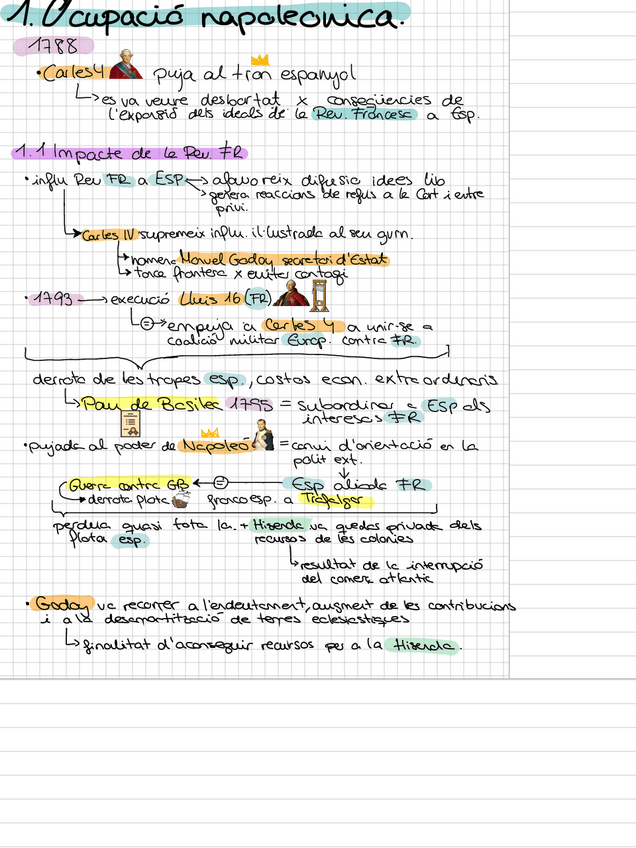 1. Ocupació napoleonica.
1788
• Carles 4 puja al tron espanyol
↳ es va veure desbortat x conseqüencies de
l'expansió dels ideals de la Rev. Francesa a Esp.
1.1 Impacte de la Rev. FR
• influ Rev FR a ESP → afavoreix difusio idees lib
→ genera reaccions de refus a la Cort i entre
privi.
→ Carles IV supremeix influ. il·lustrada al seu gvrn.
→ nomena Manuel Godoy secretari d'Estat
→ tanca frontera x evitar contagi
• 1793 → execució Lluis 16 (FR)
↳ empuja a Carles 4 a unir-se a
coalició militar Europ. contra FR.
derrota de les tropes esp., costos econ. extraordinaris
↳ Pau de Basilea 1795 = subordinar a ESP als
interesos FR
• pujada al poder de Napoleó = canvi d'orientació en la
polit ext.
Guerra contra GB ← Esp aliada FR
→ derrota flota francoesp. a Trafalgar
perdua quasi tota la + Hisenda va quedar privada dels
flota esp. recursos de les colonies
↳ resultat de la interrupció
del comerç atlantic
• Godoy va recorrer a l'endeutament, augment de les contribucions
i a la desamortització de terres eclesiastiques
↳ finalitat d'aconseguir recursos per a la Hisenda.